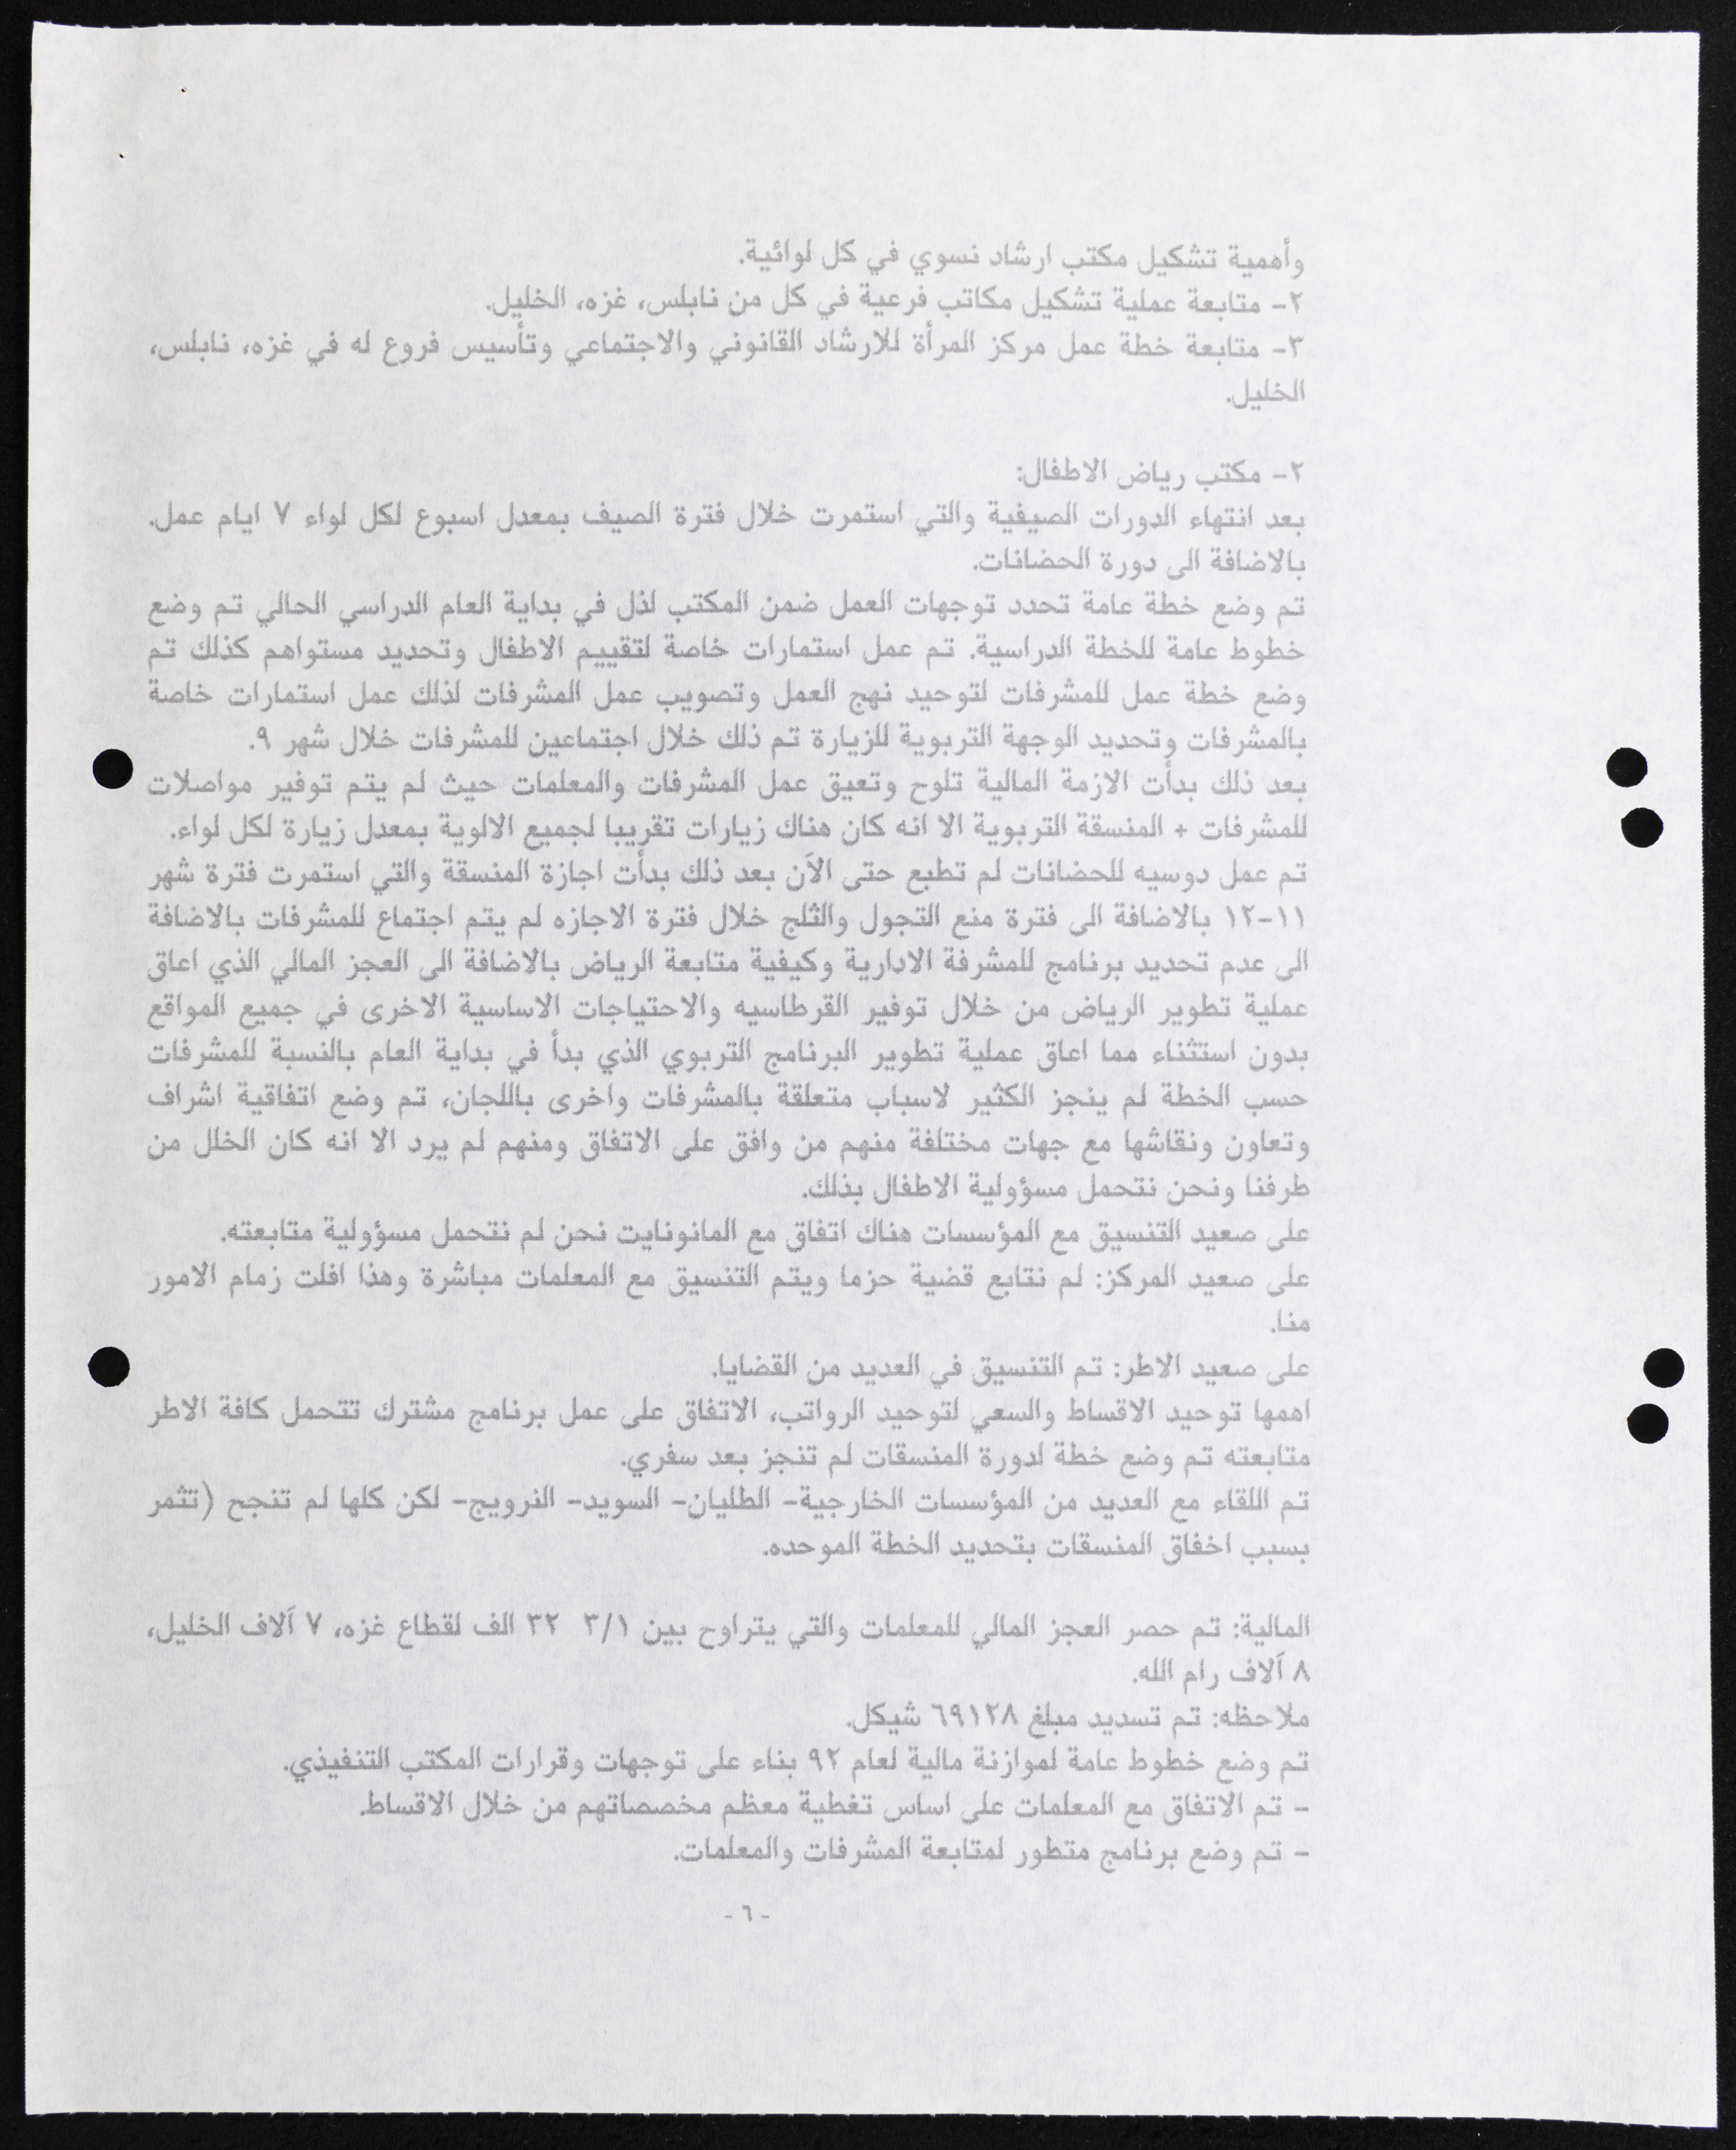 وأهمية تشكيل مكتب ارشاد نسوي في كل لوائية.
٢- متابعة عملية تشكيل مكاتب فرعية في كل من نابلس، غزه، الخليل.
٣- متابعة خطة عمل مركز المرأة للارشاد القانوني والاجتماعي وتأسيس فروع له في غزه، نابلس،
الخليل.
٢- مكتب رياض الاطفال:
بعد انتهاء الدورات الصيفية والتي استمرت خلال فترة الصيف بمعدل اسبوع لكل لواء ٧ ايام عمل.
بالاضافة الى دورة الحضانات.
تم وضع خطة عامة تحدد توجهات العمل ضمن المكتب لذل في بداية العام الدراسي الحالي تم وضع
خطوط عامة للخطة الدراسية. تم عمل استمارات خاصة لتقييم الاطفال وتحديد مستواهم كذلك تم
وضع خطة عمل للمشرفات لتوحيد نهج العمل وتصويب عمل المشرفات لذلك عمل استمارات خاصة
بالمشرفات وتحديد الوجهة التربوية للزيارة تم ذلك خلال اجتماعين للمشرفات خلال شهر ٩.
بعد ذلك بدأت الازمة المالية تلوح وتعيق عمل المشرفات والمعلمات حيث لم يتم توفير مواصلات
للمشرفات + المنسقة التربوية الا انه كان هناك زيارات تقريبا لجميع الالوية بمعدل زيارة لكل لواء.
تم عمل دوسيه للحضانات لم تطبع حتى الآن بعد ذلك بدأت اجازة المنسقة والتي استمرت فترة شهر
١١-١٢ بالاضافة الى فترة منع التجول والثلج خلال فترة الاجازه لم يتم اجتماع للمشرفات بالاضافة
الى عدم تحديد برنامج للمشرفة الادارية وكيفية متابعة الرياض بالاضافة الى العجز المالي الذي اعاق
عملية تطوير الرياض من خلال توفير القرطاسيه والاحتياجات الاساسية الاخرى في جميع المواقع
بدون استثناء مما اعاق عملية تطوير البرنامج التربوي الذي بدأ في بداية العام بالنسبة للمشرفات
حسب الخطة لم ينجز الكثير لاسباب متعلقة بالمشرفات واخرى باللجان، تم وضع اتفاقية اشراف
وتعاون ونقاشها مع جهات مختلفة منهم من وافق على الاتفاق ومنهم لم يرد الا انه كان الخلل من
طرفنا ونحن نتحمل مسؤولية الاطفال بذلك.
على صعيد التنسيق مع المؤسسات هناك اتفاق مع المانونايت نحن لم نتحمل مسؤولية متابعته.
على صعيد المركز: لم نتابع قضية حزما ويتم التنسيق مع المعلمات مباشرة وهذا افلت زمام الامور
منا.
على صعيد الاطر: تم التنسيق في العديد من القضايا.
اهمها توحيد الاقساط والسعي لتوحيد الرواتب، الاتفاق على عمل برنامج مشترك تتحمل كافة الاطر
متابعته تم وضع خطة لدورة المنسقات لم تنجز بعد سفري.
تم اللقاء مع العديد من المؤسسات الخارجية- الطليان- السويد- النرويج- لكن كلها لم تنجح (تثمر
بسبب اخفاق المنسقات بتحديد الخطة الموحده.
المالية: تم حصر العجز المالي للمعلمات والتي يتراوح بين ٣/١ ٣٢ الف لقطاع غزه، ٧ آلاف الخليل،
٨ آلاف رام الله.
ملاحظه: تم تسديد مبلغ ٦٩١٢٨ شيكل.
تم وضع خطوط عامة لموازنة مالية لعام ٩٢ بناء على توجهات وقرارات المكتب التنفيذي.
- تم الاتفاق مع المعلمات على اساس تغطية معظم مخصصاتهم من خلال الاقساط.
- تم وضع برنامج متطور لمتابعة المشرفات والمعلمات.
- ٦ -